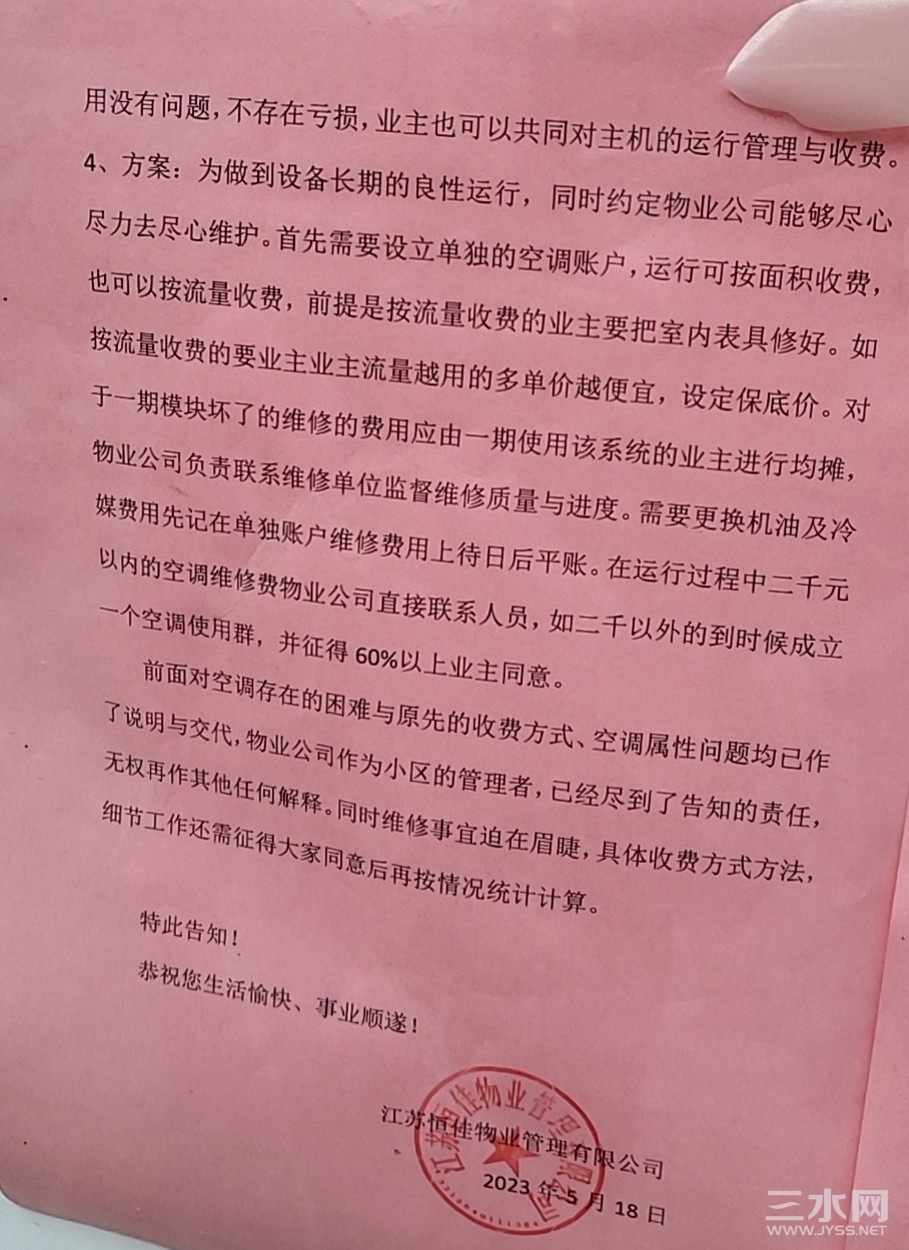 用没有问题，不存在亏损，业主也可以共同对主机的运行管理与收费。
4、方案：为做到设备长期的良性运行，同时约定物业公司能够尽心
尽力去尽心维护。首先需要设立单独的空调账户，运行可按面积收费，
也可以按流量收费，前提是按流量收费的业主要把室内表具修好。如
按流量收费的要业主业主流量越用的多单价越便宜，设定保底价。对
于一期模块坏了的维修的费用应由一期使用该系统的业主进行均摊，
物业公司负责联系维修单位监督维修质量与进度。需要更换机油及冷
媒费用先记在单独账户维修费用上待日后平账。在运行过程中二千元
以内的空调维修费物业公司直接联系人员，如二千以外的到时候成立
一个空调使用群，并征得 60%以上业主同意。
前面对空调存在的困难与原先的收费方式、空调属性问题均已作
了说明与交代，物业公司作为小区的管理者，已经尽到了告知的责任，
无权再作其他任何解释。同时维修事宜迫在眉睫，具体收费方式方法，
细节工作还需征得大家同意后再按情况统计计算。
特此告知！
恭祝您生活愉快、事业顺遂！
江苏恒佳物业管理有限公司
2023 年 5 月 18 日
江苏恒佳物业管理有限公司
三水网
WWW.JYSS.NET